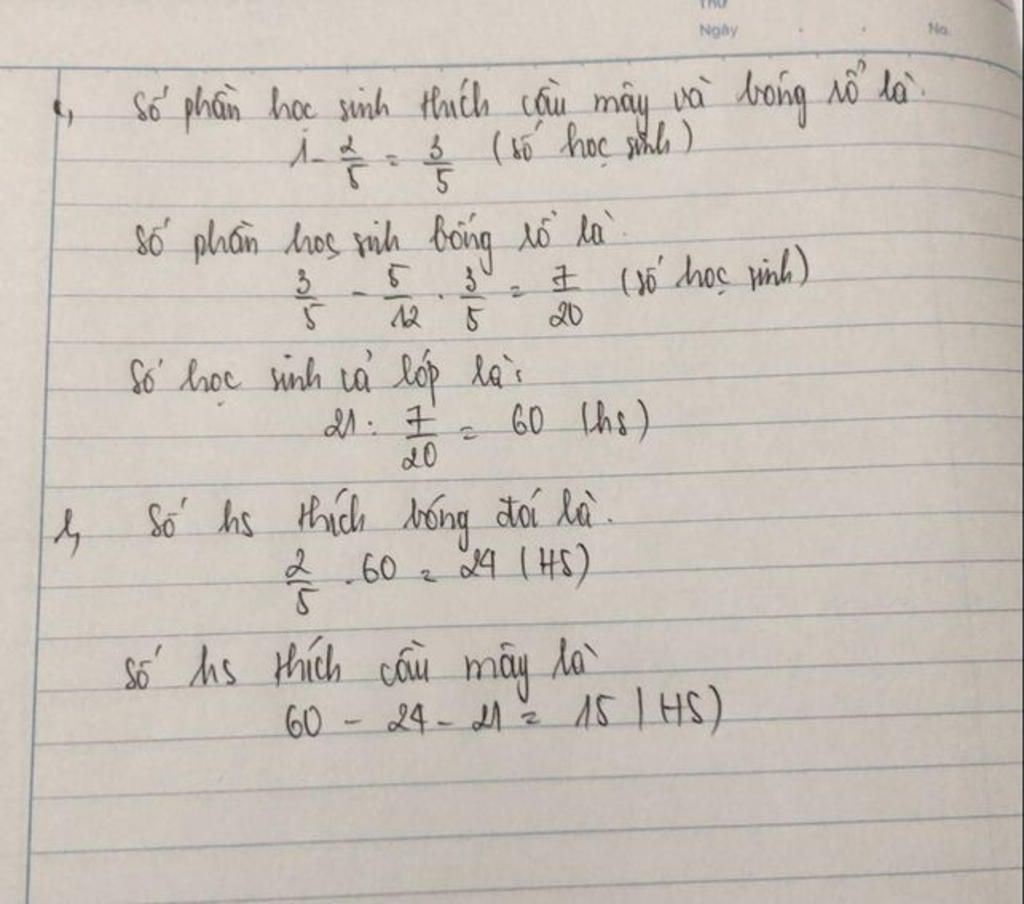 Thứ
Ngày . . No.
a, Số phần học sinh thích cầu mây và bóng rổ là.
1 - 2/5 = 3/5 (số học sinh)
Số phần học sinh bóng rổ là.
3/5 - 5/12 . 3/5 = 7/20 (số học sinh)
Số học sinh cả lớp là:
21 : 7/20 = 60 (hs)
b, Số hs thích bóng đá là.
2/5 . 60 = 24 (HS)
Số hs thích cầu mây là
60 - 24 - 21 = 15 (HS)